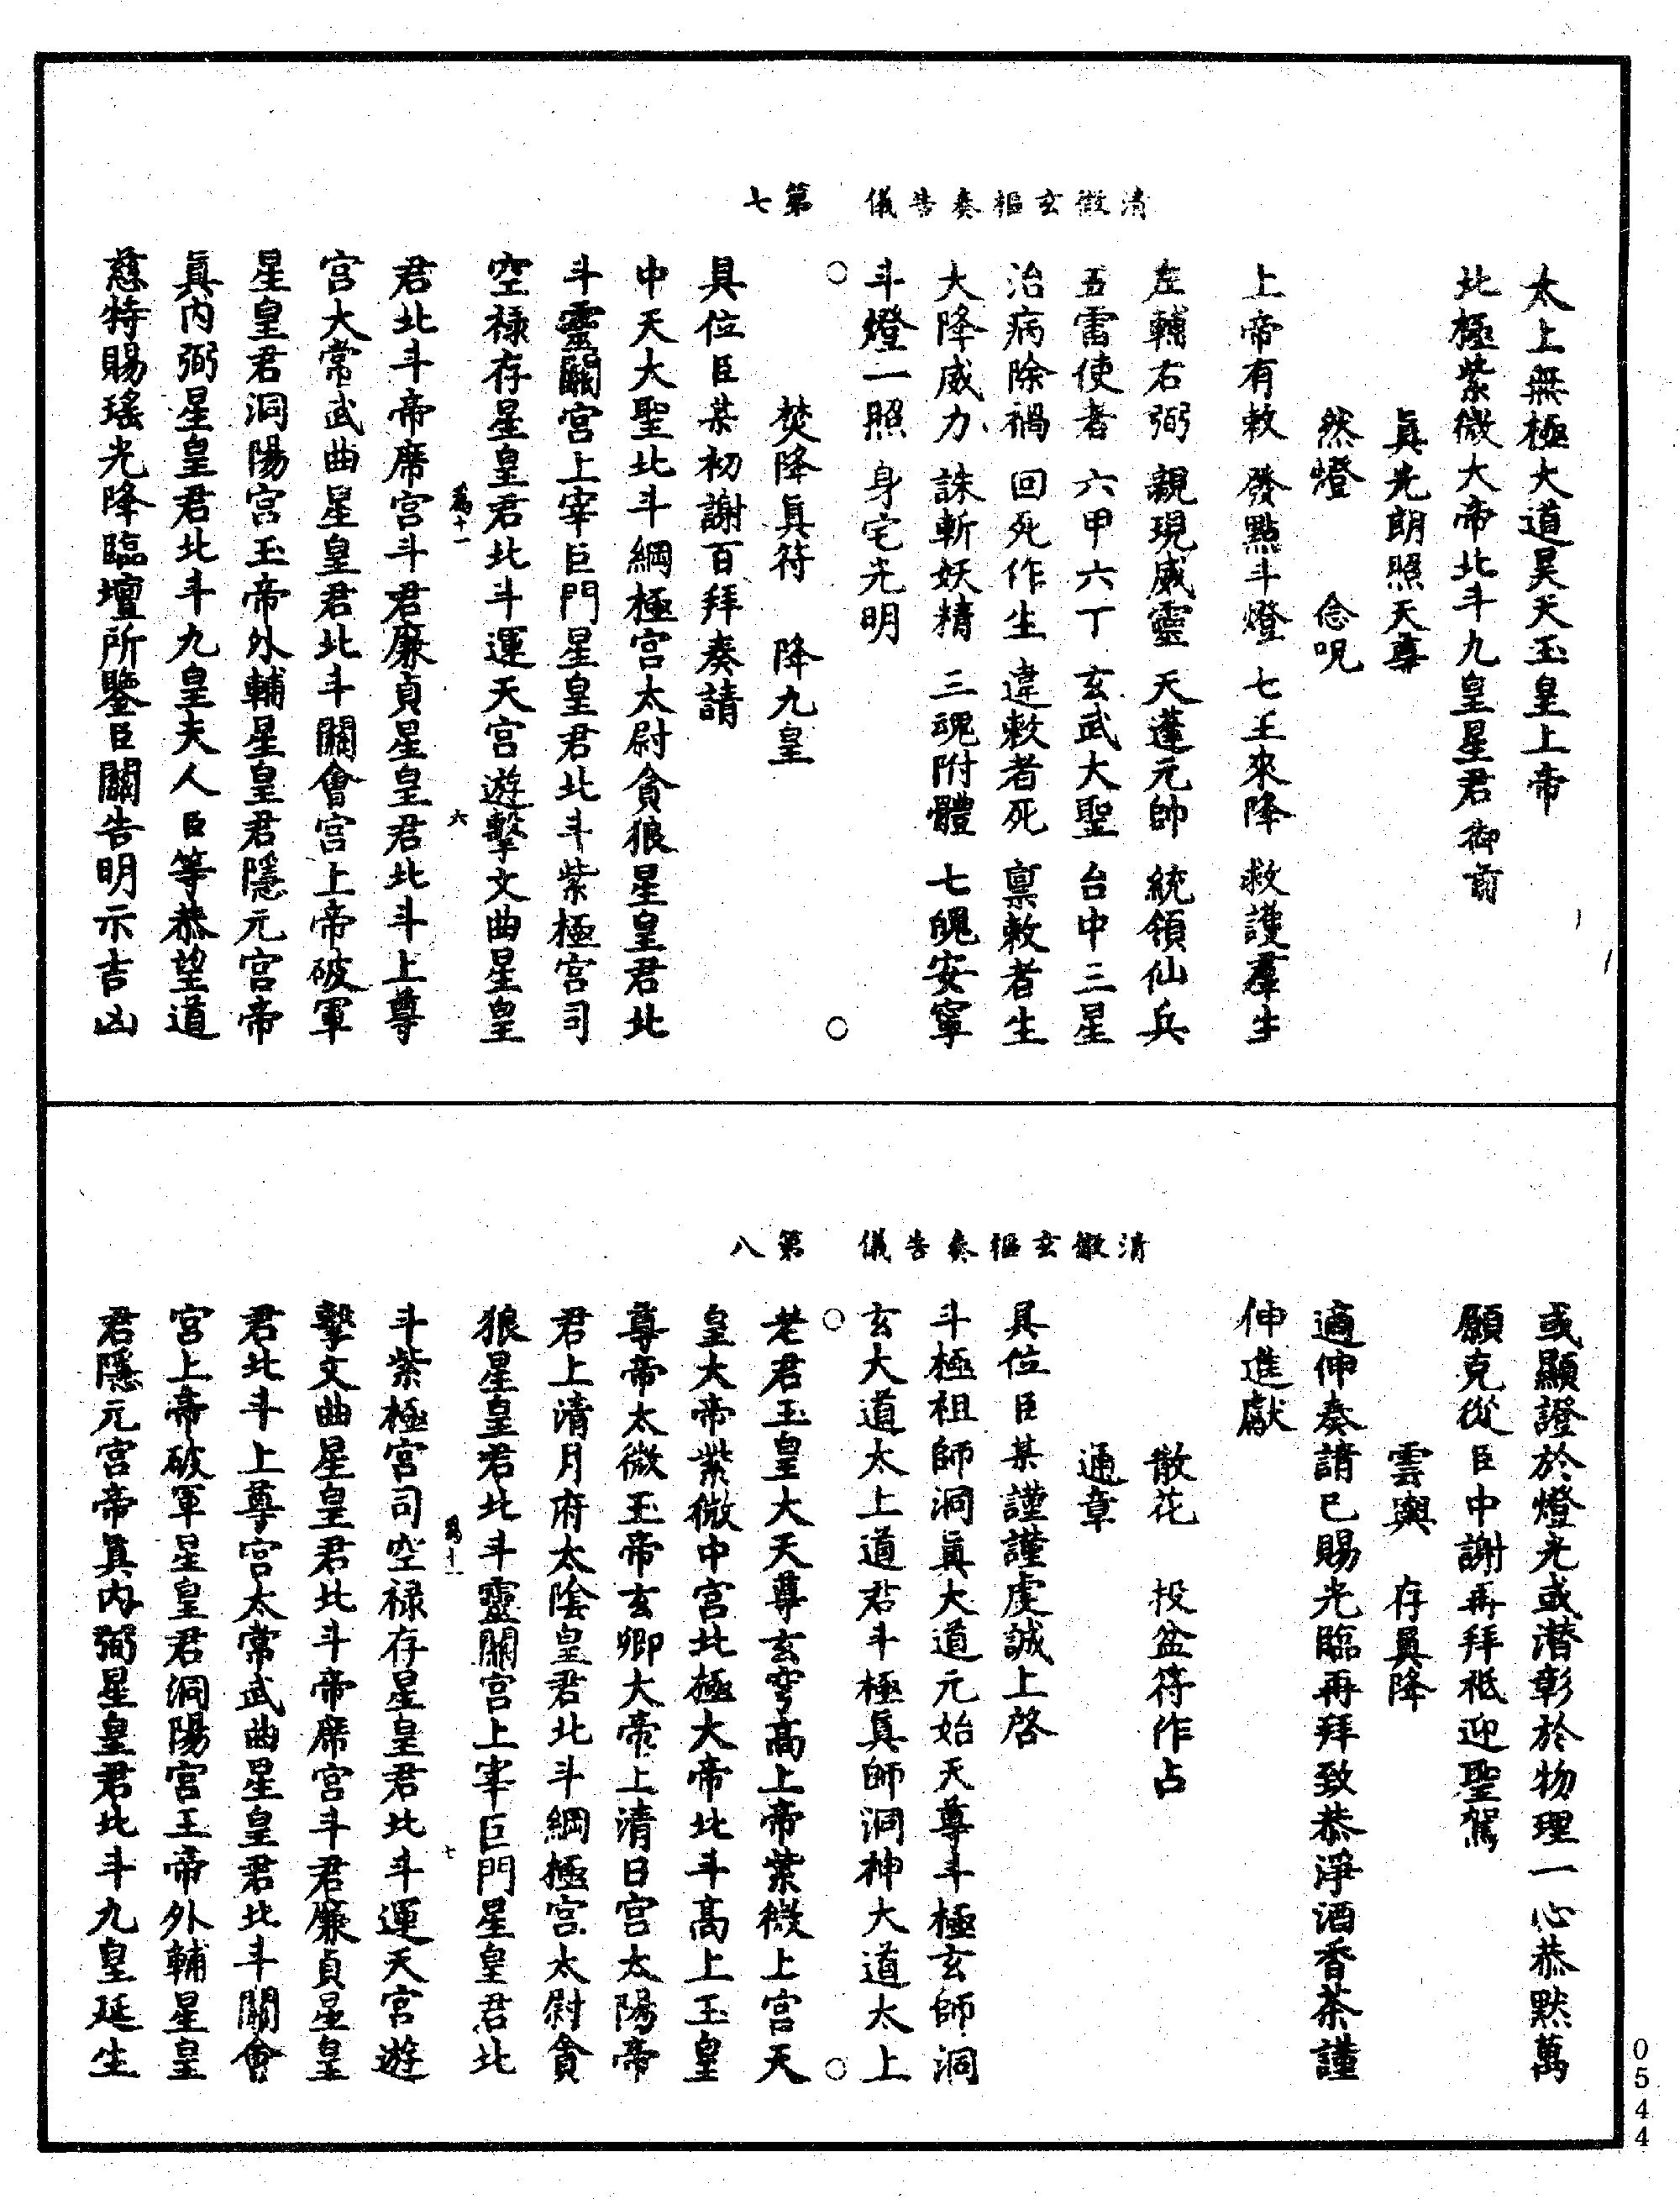 清微玄樞奏告儀　第七
太上無極大道昊天玉皇上帝
北極紫微大帝北斗九皇星君御前
眞光朗照天尊
然燈　念呪
上帝有敕　發點斗燈　七王來降　救護羣生
左輔右弼　親現威靈　天蓬元帥　統領仙兵
五雷使者　六甲六丁　玄武大聖　台中三星
治病除禍　回死作生　違敕者死　稟敕者生
大降威力　誅斬妖精　三魂附體　七魄安寧
斗燈一照　身宅光明
○　○
焚降眞符　降九皇
具位臣某初謝百拜奏請
中天大聖北斗綱極宮太尉貪狼星皇君北
斗靈關宮上宰巨門星皇君北斗紫極宮司
空祿存星皇君北斗運天宮遊擊文曲星皇
爲十一　六
君北斗帝席宮斗君廉貞星皇君北斗上尊
宮大常武曲星皇君北斗關會宮上帝破軍
星皇君洞陽宮玉帝外輔星皇君隱元宮帝
眞內弼星皇君北斗九皇夫人臣等恭望道
慈特賜瑤光降臨壇所鑒臣關告明示吉凶
清微玄樞奏告儀　第八
或顯證於燈光或潛彰於物理一心恭默萬
願克從臣中謝再拜祗迎聖駕
雲輿　存眞降
適伸奏請已賜光臨再拜致恭淨酒香茶謹
伸進獻
散花　投盆符作占
通章
具位臣某謹謹虔誠上啓
斗極祖師洞眞大道元始天尊斗極玄師洞
玄大道太上道君斗極眞師洞神大道太上
○　○
老君玉皇大天尊玄穹高上帝紫微上宮天
皇大帝紫微中宮北極大帝北斗高上玉皇
尊帝太微玉帝玄卿大帝上清日宮太陽帝
君上清月府太陰皇君北斗綱極宮太尉貪
狼星皇君北斗靈關宮上宰巨門星皇君北
爲十一　七
斗紫極宮司空祿存星皇君北斗運天宮遊
擊文曲星皇君北斗帝席宮斗君廉貞星皇
君北斗上尊宮太常武曲星皇君北斗關會
宮上帝破軍星皇君洞陽宮玉帝外輔星皇
君隱元宮帝眞內弼星皇君北斗九皇延生
0544